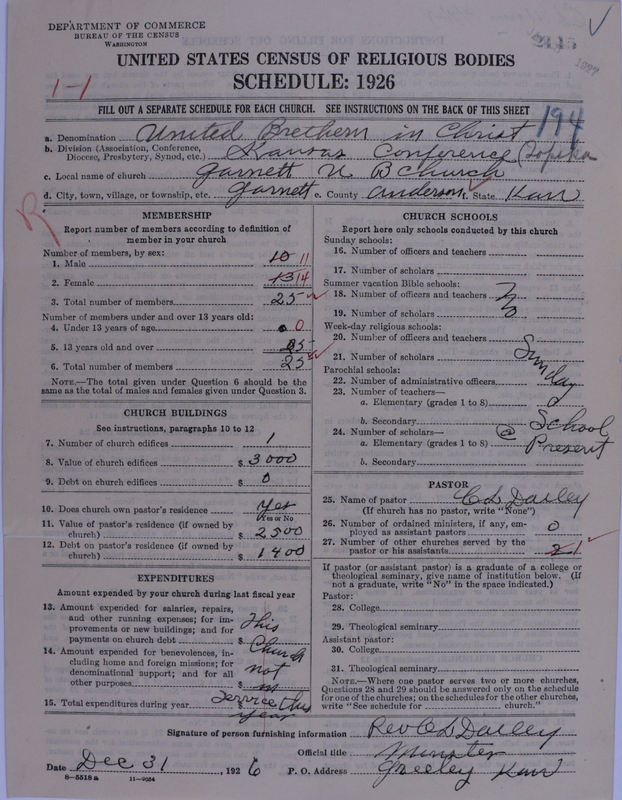 DEPARTMENT OF COMMERCE
BUREAU OF THE CENSUS
WASHINGTON
UNITED STATES CENSUS OF RELIGIOUS BODIES
SCHEDULE: 1926
1-1
FILL OUT A SEPARATE SCHEDULE FOR EACH CHURCH. SEE INSTRUCTIONS ON THE BACK OF THIS SHEET
194
a. Denomination United Brethern in Christ
b. Division (Association, Conference, Diocese, Presbytery, Synod, etc.) Kansas Conference (Topeka
c. Local name of church Garnett U B Church
d. City, town, village, or township, etc. Garnett e. County Anderson f. State Kan
R
MEMBERSHIP
Report number of members according to definition of member in your church
Number of members, by sex:
1. Male 10 11
2. Female 13 14
3. Total number of members 25
Number of members under and over 13 years old:
4. Under 13 years of age 0
5. 13 years old and over 25
6. Total number of members 25
NOTE.—The total given under Question 6 should be the same as the total of males and females given under Question 3.
CHURCH BUILDINGS
See instructions, paragraphs 10 to 12
7. Number of church edifices 1
8. Value of church edifices $ 3000
9. Debt on church edifices $ 0
10. Does church own pastor's residence Yes
Yes or No
11. Value of pastor's residence (if owned by church) $ 2500
12. Debt on pastor's residence (if owned by church) $ 1400
EXPENDITURES
Amount expended by your church during last fiscal year
13. Amount expended for salaries, repairs, and other running expenses; for improvements or new buildings; and for payments on church debt $
14. Amount expended for benevolences, including home and foreign missions; for denominational support; and for all other purposes $
15. Total expenditures during year $
This
Church
not
in
service this
year
CHURCH SCHOOLS
Report here only schools conducted by this church
Sunday schools:
16. Number of officers and teachers
17. Number of scholars
Summer vacation Bible schools:
18. Number of officers and teachers
19. Number of scholars
Week-day religious schools:
20. Number of officers and teachers
21. Number of scholars
Parochial schools:
22. Number of administrative officers
23. Number of teachers—
a. Elementary (grades 1 to 8)
b. Secondary
24. Number of scholars—
a. Elementary (grades 1 to 8)
b. Secondary
No
Sunday
School
@ Present
PASTOR
25. Name of pastor C L Dailey
(If church has no pastor, write "None")
26. Number of ordained ministers, if any, employed as assistant pastors 0
27. Number of other churches served by the pastor or his assistants 2 1
If pastor (or assistant pastor) is a graduate of a college or theological seminary, give name of institution below. (If not a graduate, write "No" in the space indicated.)
Pastor:
28. College
29. Theological seminary
Assistant pastor:
30. College
31. Theological seminary
NOTE.—Where one pastor serves two or more churches, Questions 28 and 29 should be answered only on the schedule for one of the churches; on the schedules for the other churches, write "See schedule for church."
Signature of person furnishing information Rev C L Dailey
Official title Minister
Date Dec 31, 1926 P. O. Address Greeley Kan
8-5518a 11-9034